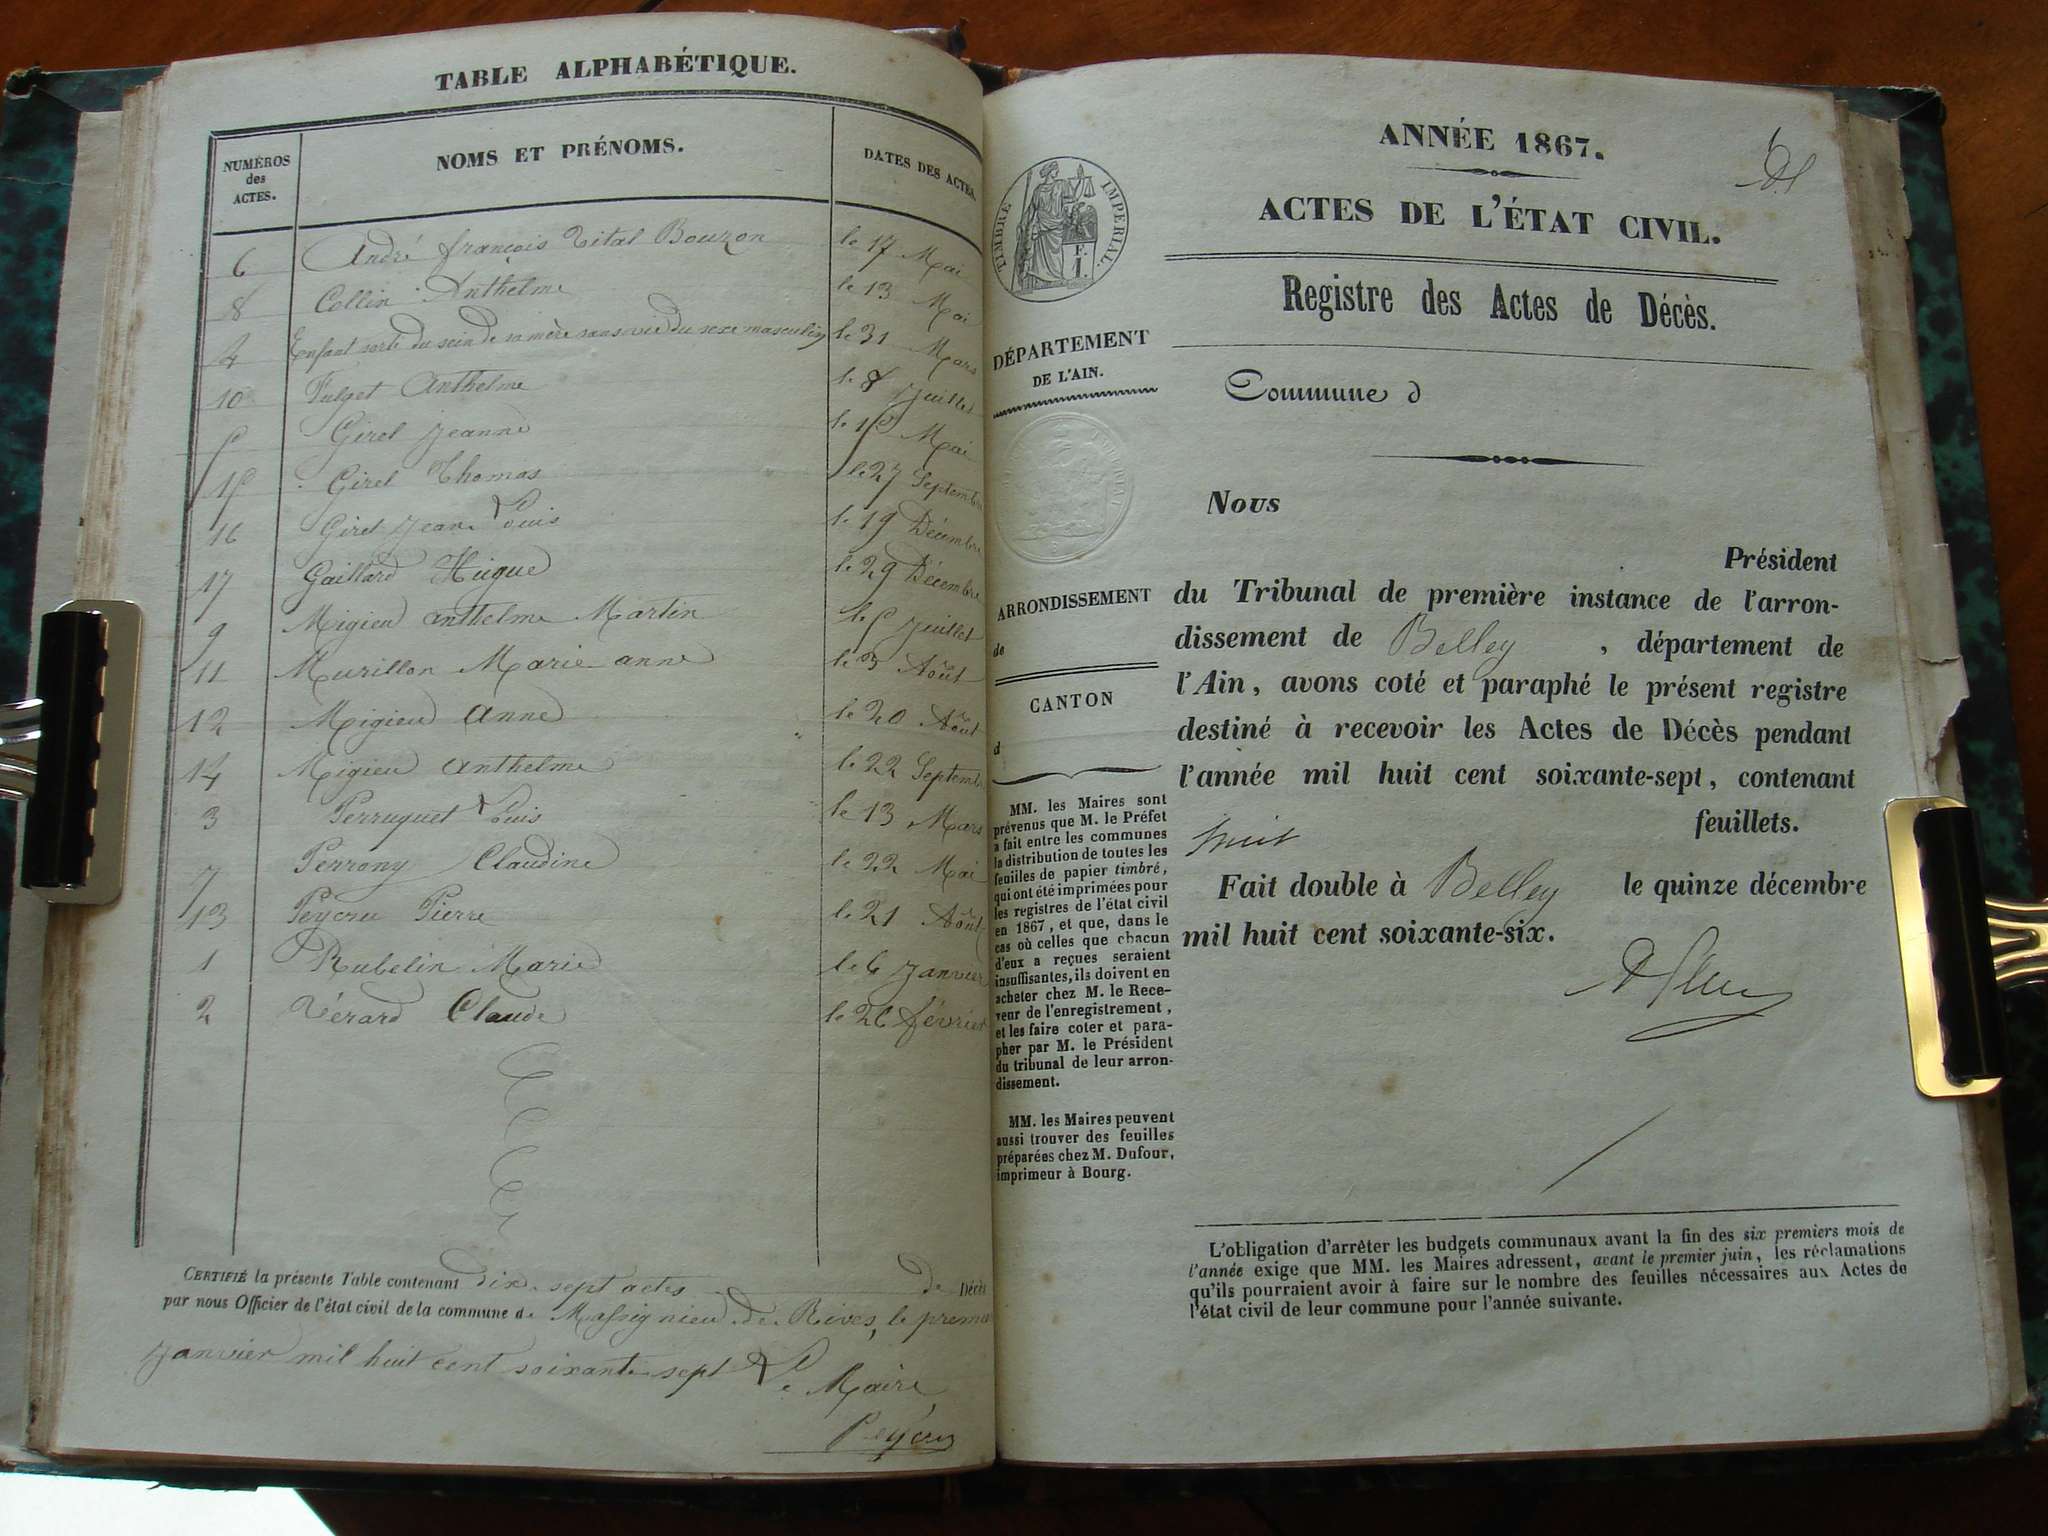 TABLE ALPHABÉTIQUE.
NUMÉROS des ACTES. NOMS ET PRÉNOMS. DATES DES ACTES.
6 André françois Vital Bouzon le 17 Mai
8 Collin Anthelme le 13 Mai
4 Enfant sorti du sein de sa mère sans vie du sexe masculin le 31 Mars
10 Fulget Anthelme le 8 Juillet
5 Girel Jeanne le 15 Mai
15 Girel Thomas le 27 Septembre
16 Girel Jean Louis le 19 Décembre
17 Gaillard Hugue le 29 Décembre
9 Migieu anthelme Martin le 5 Juillet
11 Murillon Marie anne le 3 Août
12 Migieu Anne le 20 Août
14 Migieu Anthelme le 22 Septembre
3 Perruquet Louis le 13 Mars
7 Perrony Claudine le 22 Mai
13 Peycru Pierre le 21 Août
1 Rubelin Marie le 6 Janvier
2 Vérard Claude le 26 février
CERTIFIÉ la présente Table contenant dix-sept actes de Décès
par nous Officier de l'état civil de la commune de Massignieu de Rives, le premier
Janvier mil huit cent soixante sept Le Maire
Peycru
ANNÉE 1867.
ACTES DE L'ÉTAT CIVIL.
TIMBRE IMPERIAL.
F.
1.
Registre des Actes de Décès.
DÉPARTEMENT
DE L'AIN.
Commune d
Nous
Président
ARRONDISSEMENT
de
CANTON
d
du Tribunal de première instance de l'arron-
dissement de Belley , département de
l'Ain, avons coté et paraphé le présent registre
destiné à recevoir les Actes de Décès pendant
l'année mil huit cent soixante-sept, contenant
huit feuillets.
Fait double à Belley le quinze décembre
mil huit cent soixante-six.
MM. les Maires sont
prévenus que M. le Préfet
a fait entre les communes
la distribution de toutes les
feuilles de papier timbré,
qui ont été imprimées pour
les registres de l'état civil
en 1867, et que, dans le
cas où celles que chacun
d'eux a reçues seraient
insuffisantes, ils doivent en
acheter chez M. le Rece-
veur de l'enregistrement,
et les faire coter et para-
pher par M. le Président
du tribunal de leur arron-
dissement.
MM. les Maires peuvent
aussi trouver des feuilles
préparées chez M. Dufour,
imprimeur à Bourg.
L'obligation d'arrêter les budgets communaux avant la fin des six premiers mois de
l'année exige que MM. les Maires adressent, avant le premier juin, les réclamations
qu'ils pourraient avoir à faire sur le nombre des feuilles nécessaires aux Actes de
l'état civil de leur commune pour l'année suivante.